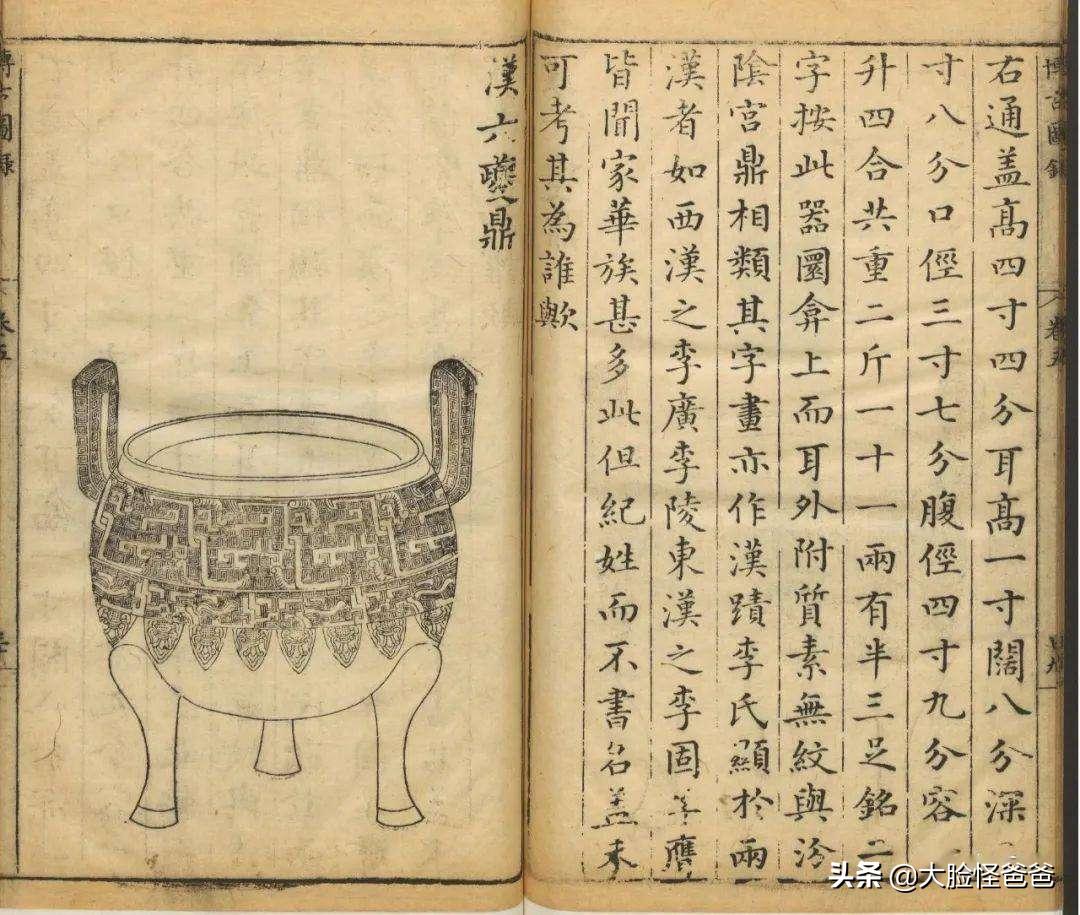 右通盖高四寸四分耳高一寸闊八分深
寸八分口徑三寸七分腹徑四寸九分容
升四合共重二斤一十一兩有半三足銘二
字按此器圜弇上而耳外附質素無紋與汾
陰宮鼎相類其字畫亦作漢蹟李氏顯於兩
漢者如西漢之李廣李陵東漢之李固李膺
皆聞家華族甚多此但紀姓而不書名盖未
可考其為誰歟
漢六夔鼎
博古圖錄
卷五
博古圖錄
卷五
头条 @大脸怪爸爸